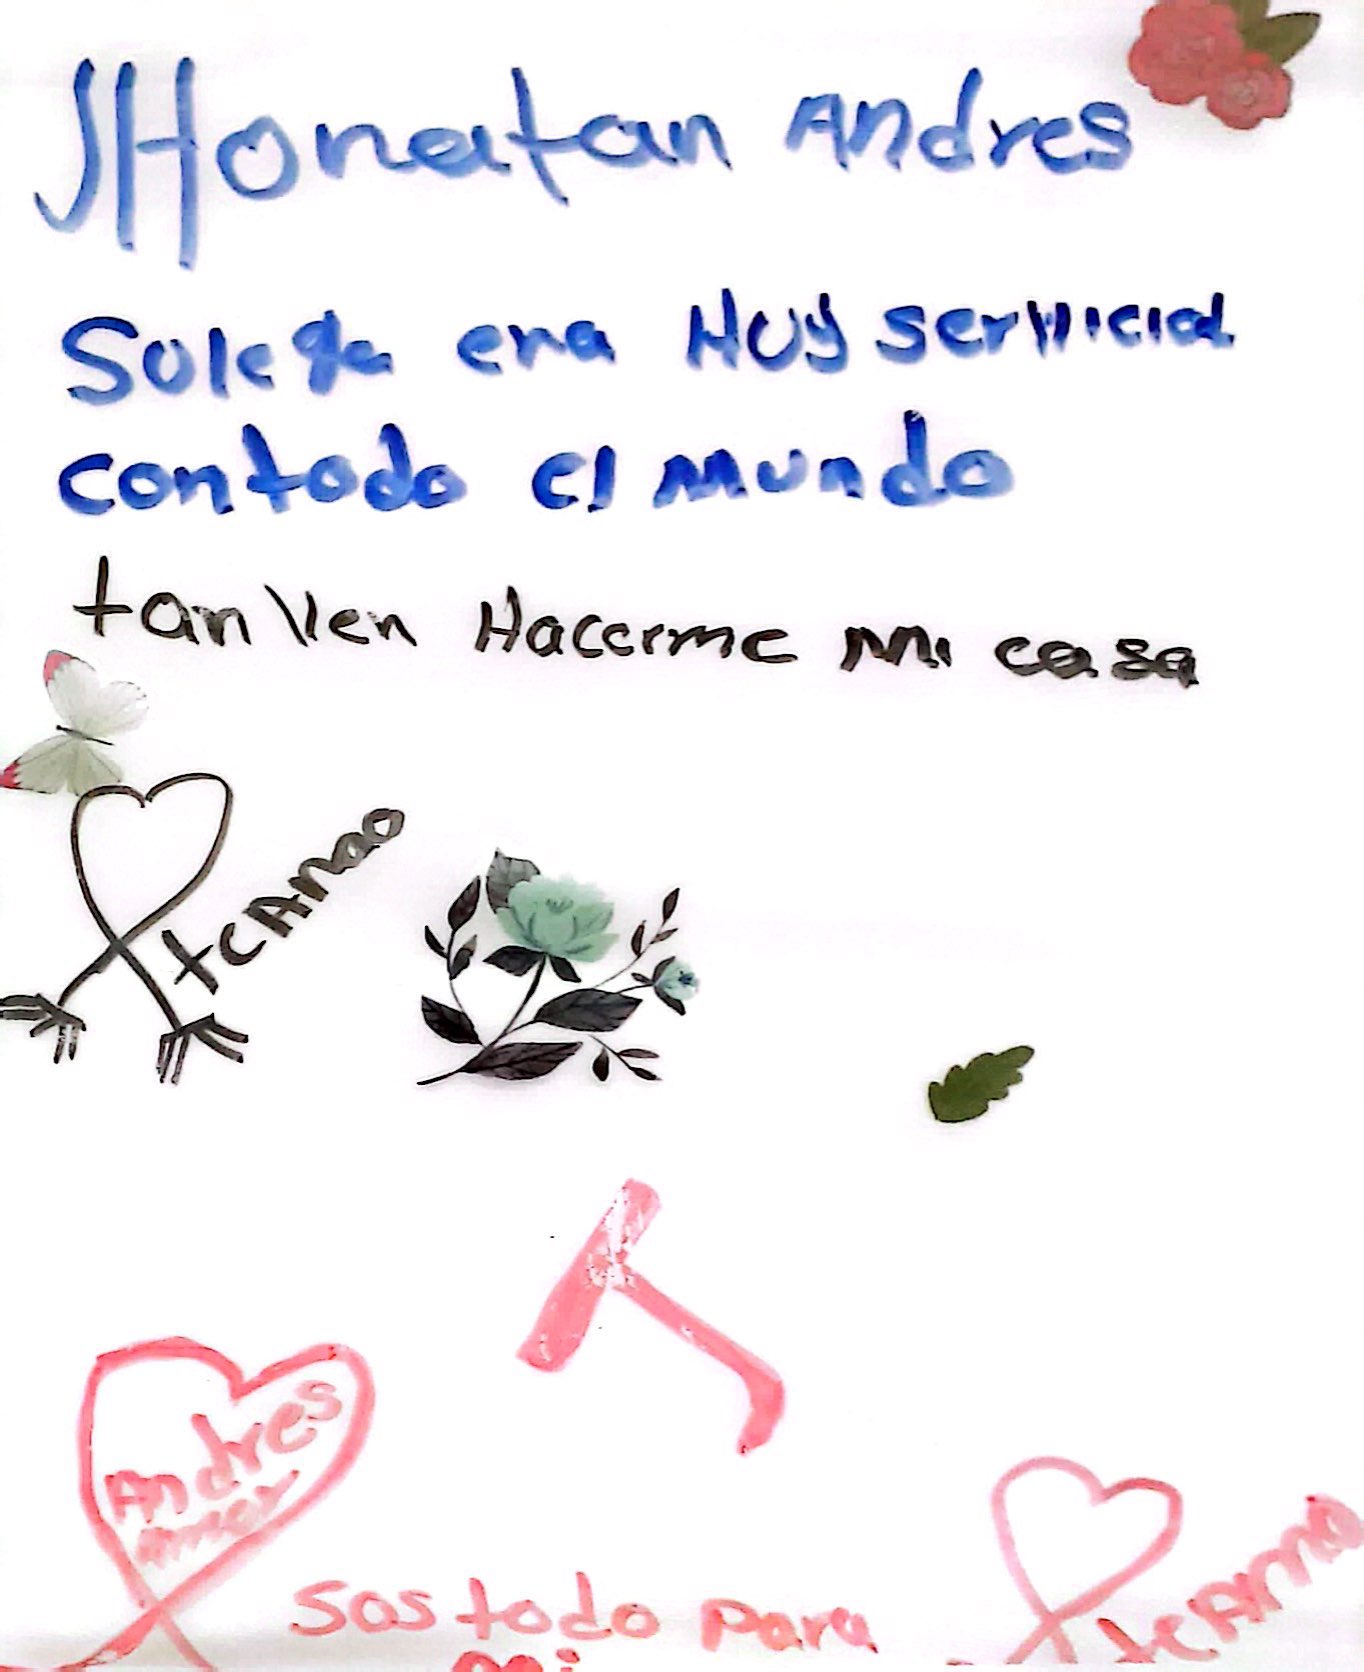 JHonatan Andres
Solega era Muy servicial
contodo el mundo
tanven Hacerme mi casa
teAmao
Andres
Amor
Sos todo para
mi
teAmo